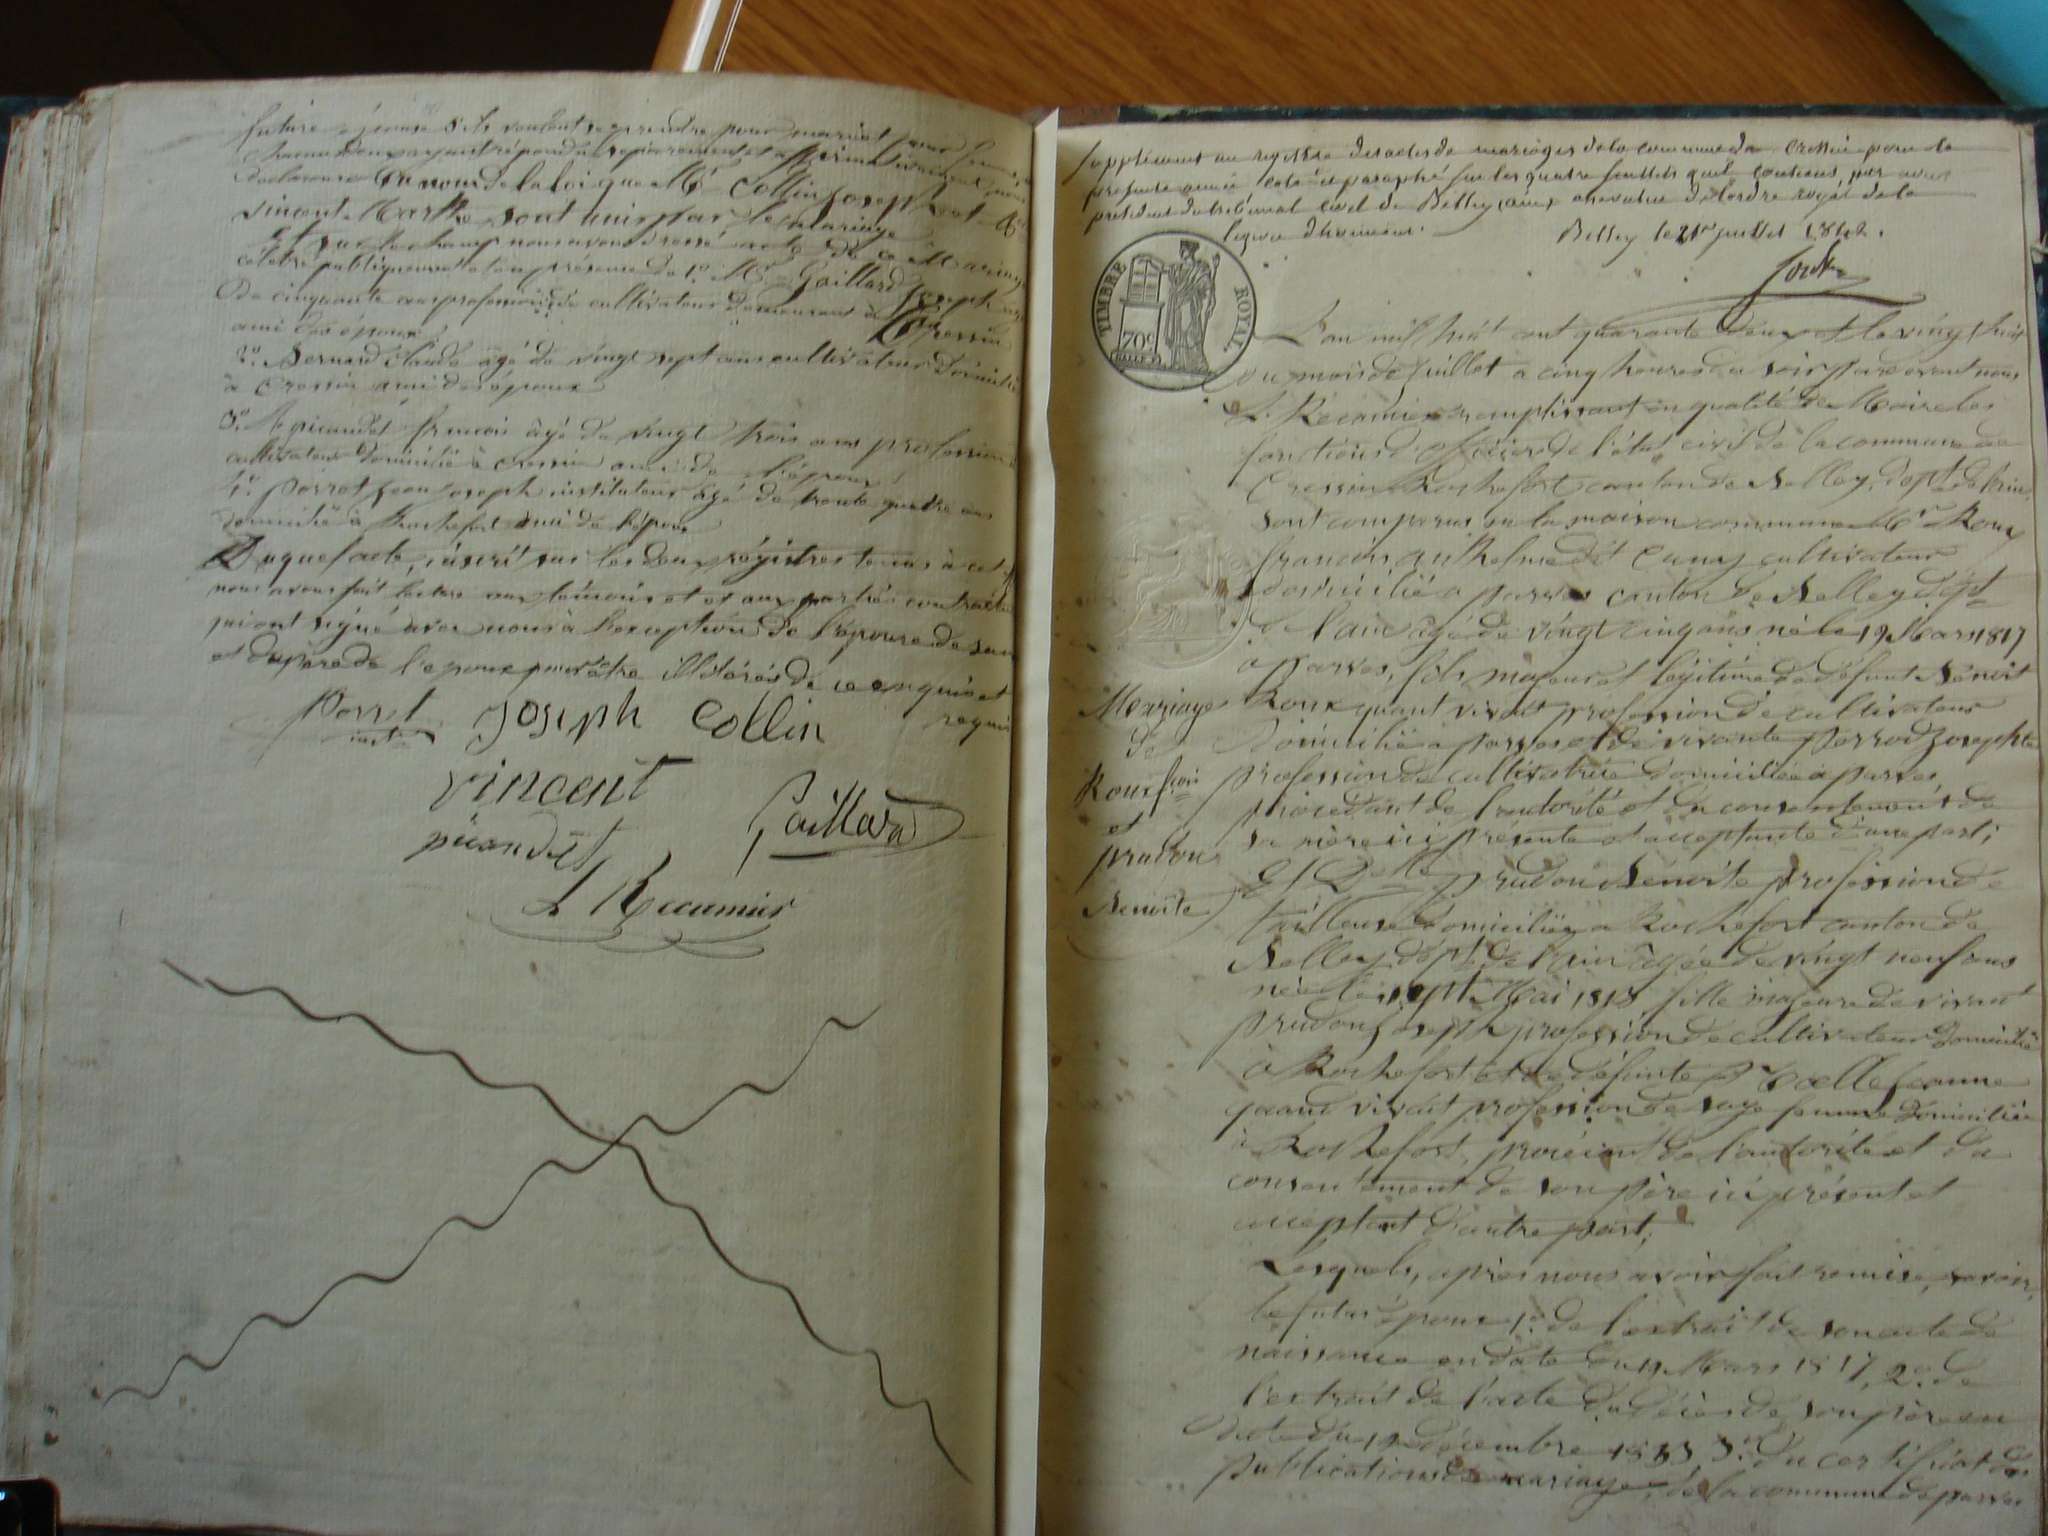 future épouse s'ils veulent se prendre pour mari et pour femme
chacun d'eux ayant répondu séparément et affirmativement, nous
déclarons au nom de la loi que Mr Collin Joseph et
vincent Marthe sont unis par le mariage
Et sur le champ nous avons dressé acte de ce Mariage
célébré publiquement et en présence de 1o Mr Gaillard Joseph agé
de cinquante ans profession de cultivateur demeurant à Cressin
ami des époux
2o Bernard Claude âgé de vingt sept ans cultivateur domicilié
à Cressin ami des époux
3o picandet françois âgé de vingt trois ans profession
cultivateur domicilié à Cressin ami de l'époux
4o Porret Jean Joseph instituteur âgé de trente quatre ans
domicilié à Rochefort ami de l'époux
Duquel acte, inscrit sur les deux régistres tenus à cet
nous avons fait lecture aux témoins et aux parties contractantes
qui ont signé avec nous à l'exception de l'épouse de
et du père de l'époux pour être illitérés de ce enquis et
requis
Porret Joseph Collin
inst
vincent
picandet Gaillard
L Récamier
supplément au registre des actes de mariages de la commune de Cressin pour la
présente année coté et paraphé sur les quatre feuillets qu'il contient, par nous
président du tribunal civil de Belley, chevalier de l'ordre royal de la
légion d'honneur. Belley le 21 juillet 1842.
TIMBRE ROYAL.
70c
L'an mil huit cent quarante deux et le vingt huit
du mois de Juillet à cinq heures du soir par devant nous
L. Récamier remplissant en qualité de Maire les
fonctions d'officier de l'état civil de la commune de
Cressin Rochefort canton de Belley, dept de l'ain
sont comparus en la maison commune Mr Roux
françois anthelme dit Cuny cultivateur
domicilié a parves canton de Belley dépt
de l'ain âgé de vingt cinq ans né le 19 Mars 1817
à parves, fils majeur et légitime de défunt Benoit
Mariage
de
Roux fçois
et
prudon
Benoite
Roux quant vivait profession de cultivateur
domicilié a parves et de vivante perrod Josephte
profession de cultivatrice domiciliée à parves
procédant de l'autorité et du consentement de
sa mère ici présente et acceptante d'une part;
Et Delle prudon Benoite profession de
tailleuse domiciliée a Rochefort canton de
Belley dépt de l'ain âgée de vingt neuf ans
née le sept Mai 1813, fille majeure de vivant
prudon Joseph profession de cultivateur domicilié
à Rochefort et de défunte Jeanne
quand vivait profession de sage femme domiciliée
à Rochefort, procédant de l'autorité et du
consentement de son père ici présent et
acceptant d'autre part;
Lesquels, après nous avoir fait remise, savoir,
le futur époux 1o de l'extrait de son acte de
naissance en date du 19 Mars 1817, 2o de
l'extrait de l'acte du décès de son père en
date du décembre 3o du certificat des
publications de mariage de la commune de parves